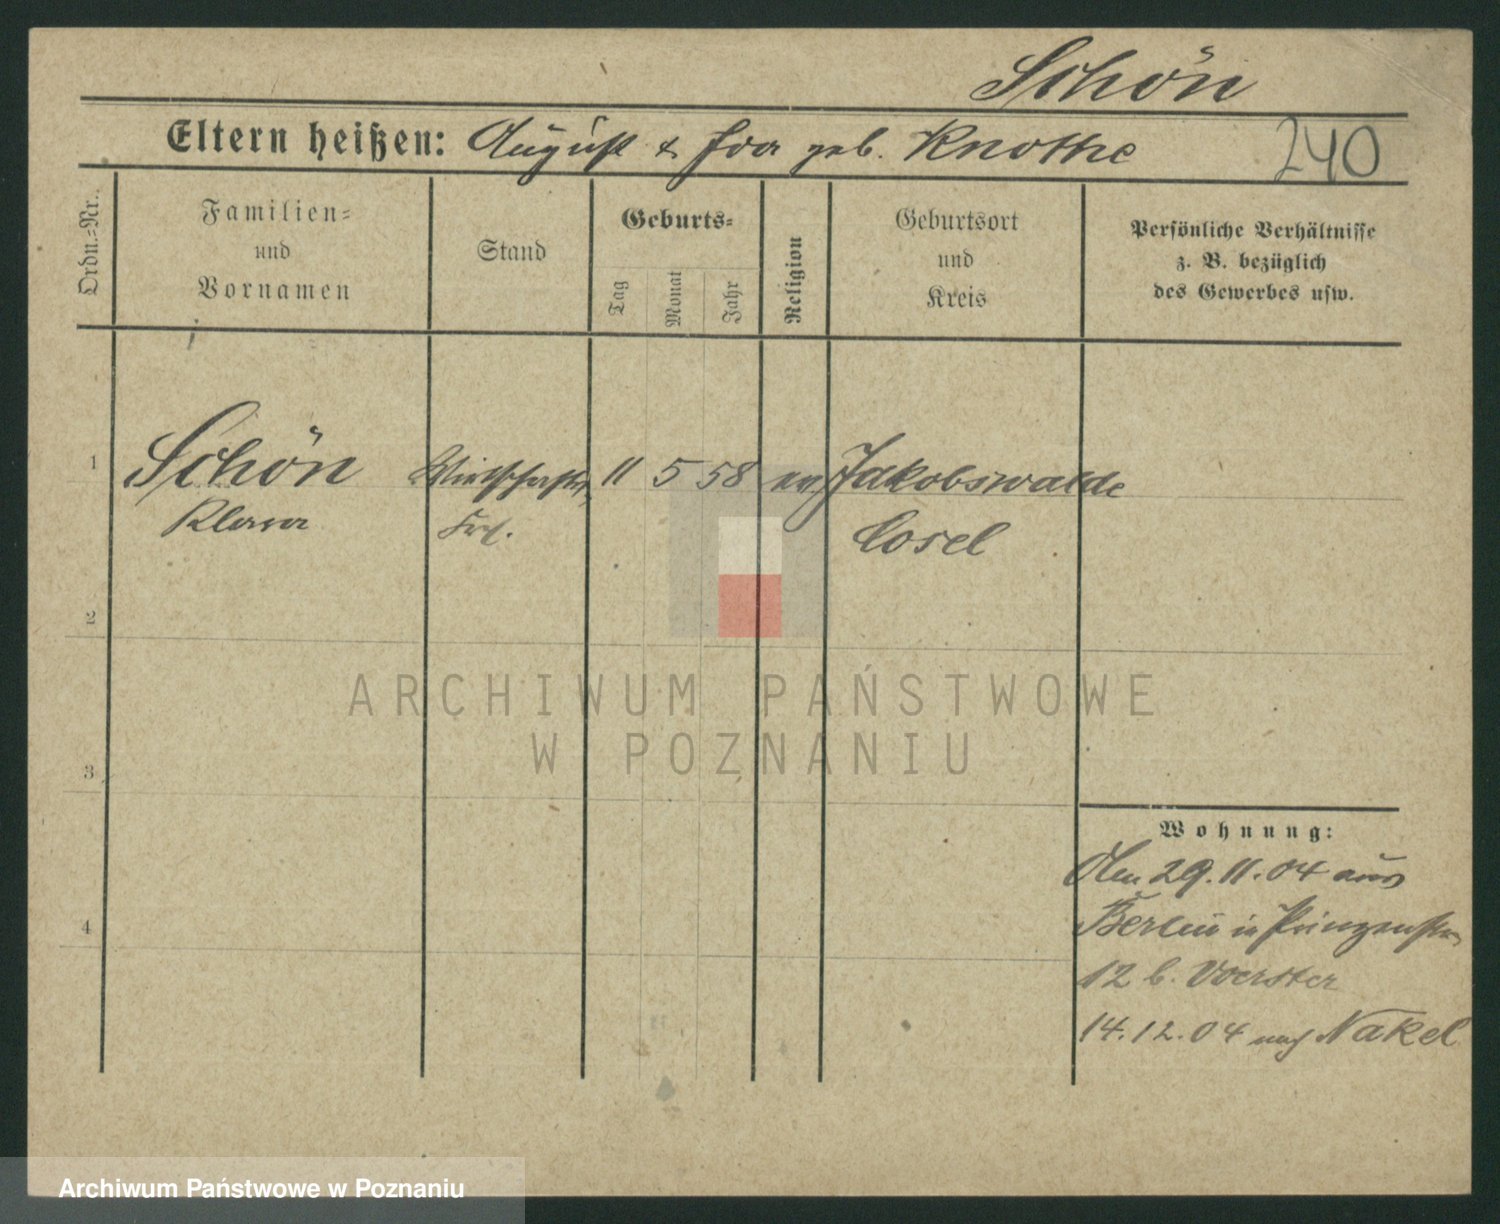 Schön
Eltern heißen: August & Ida geb. Knothe 240
Ordn.=Nr.
Familien=
und
Vornamen
Stand
Geburts=
Tag
Monat
Jahr
Religion
Geburtsort
und
Kreis
Persönliche Verhältnisse
z. B. bezüglich
des Gewerbes usw.
1 Schön Wirtschafts 11 5 58 ev. Jakobswalde
Klara Frl. Cosel
2
3
4
ARCHIWUM PAŃSTWOWE
W POZNANIU
Wohnung:
Den 29.11.04 aus
Berlin in Prinzenstr
12 b. Voerster
14.12.04 nach Nakel
Archiwum Państwowe w Poznaniu